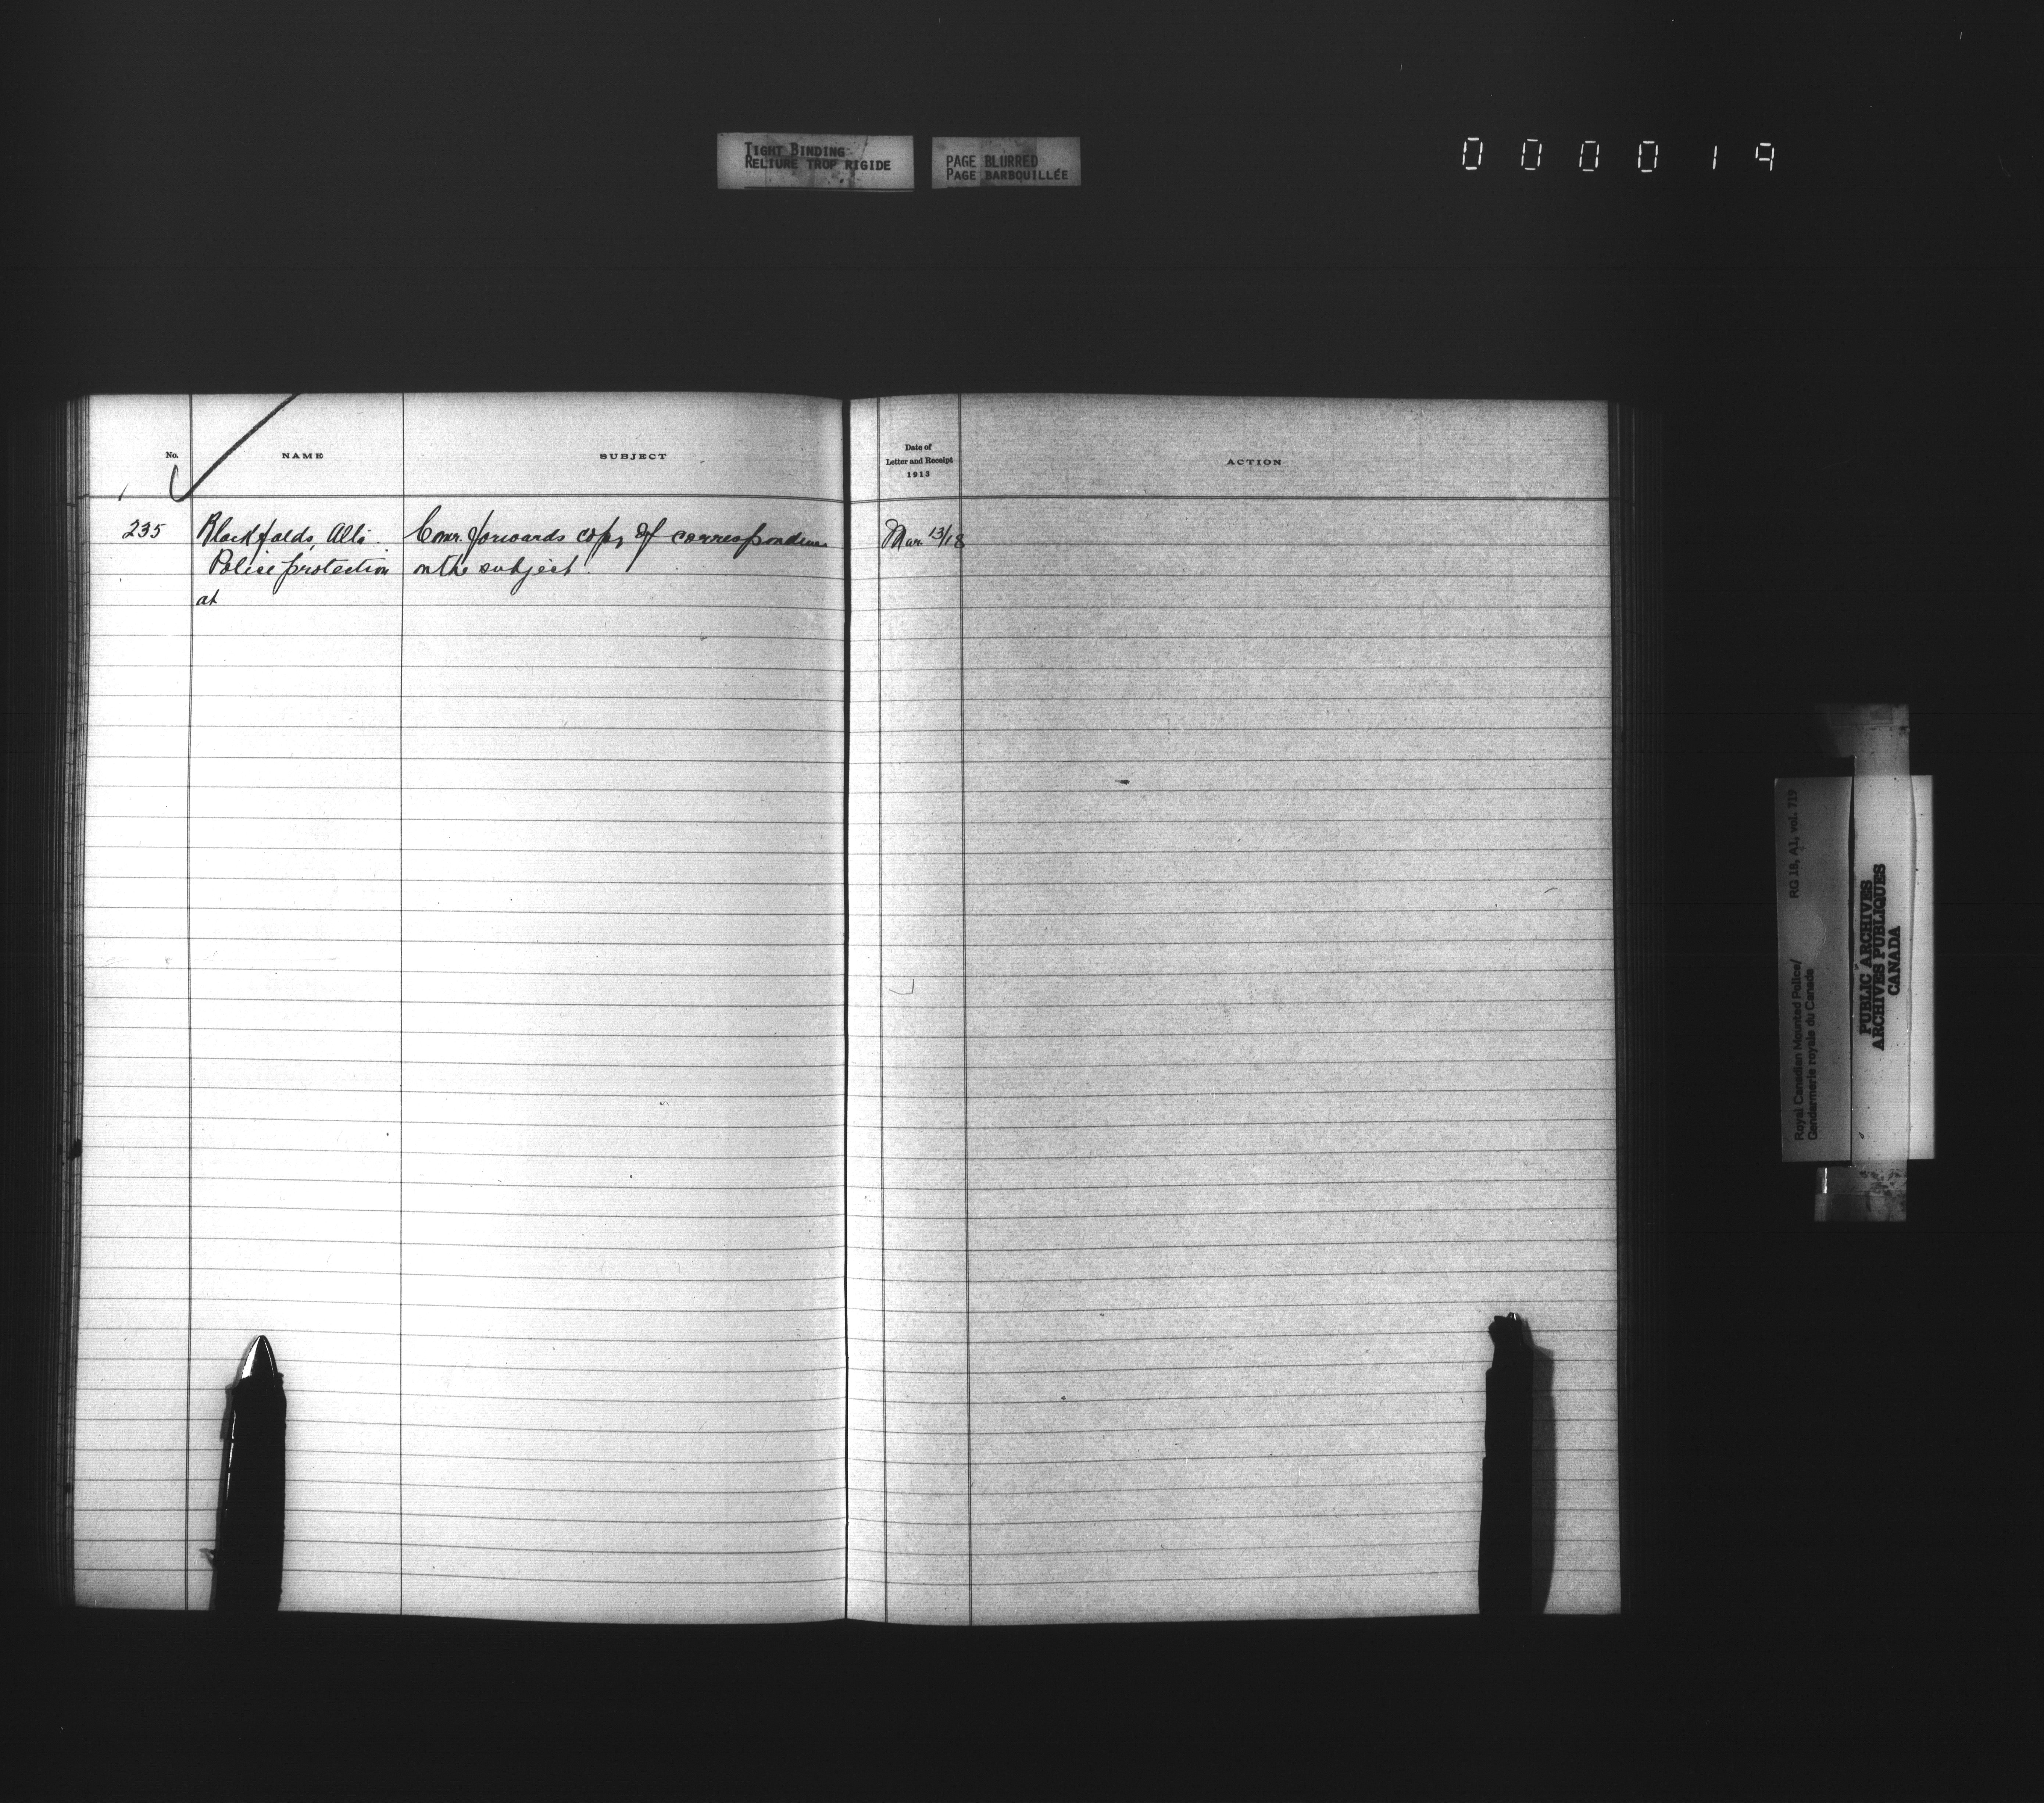 TIGHT BINDING
RELIURE TROP RIGIDE
PAGE BLURRED
PAGE BARBOUILLÉE
000019
No.
NAME
SUBJECT
Date of
Letter and Receipt
1913
ACTION
235 Blackfalds, Alta. Comr. forwards copy of correspondence Mar. 13/18
Police protection on the subject.
at
Royal Canadian Mounted Police/ RG 18, A1, vol. 719
Gendarmerie royale du Canada
PUBLIC ARCHIVES
ARCHIVES PUBLIQUES
CANADA